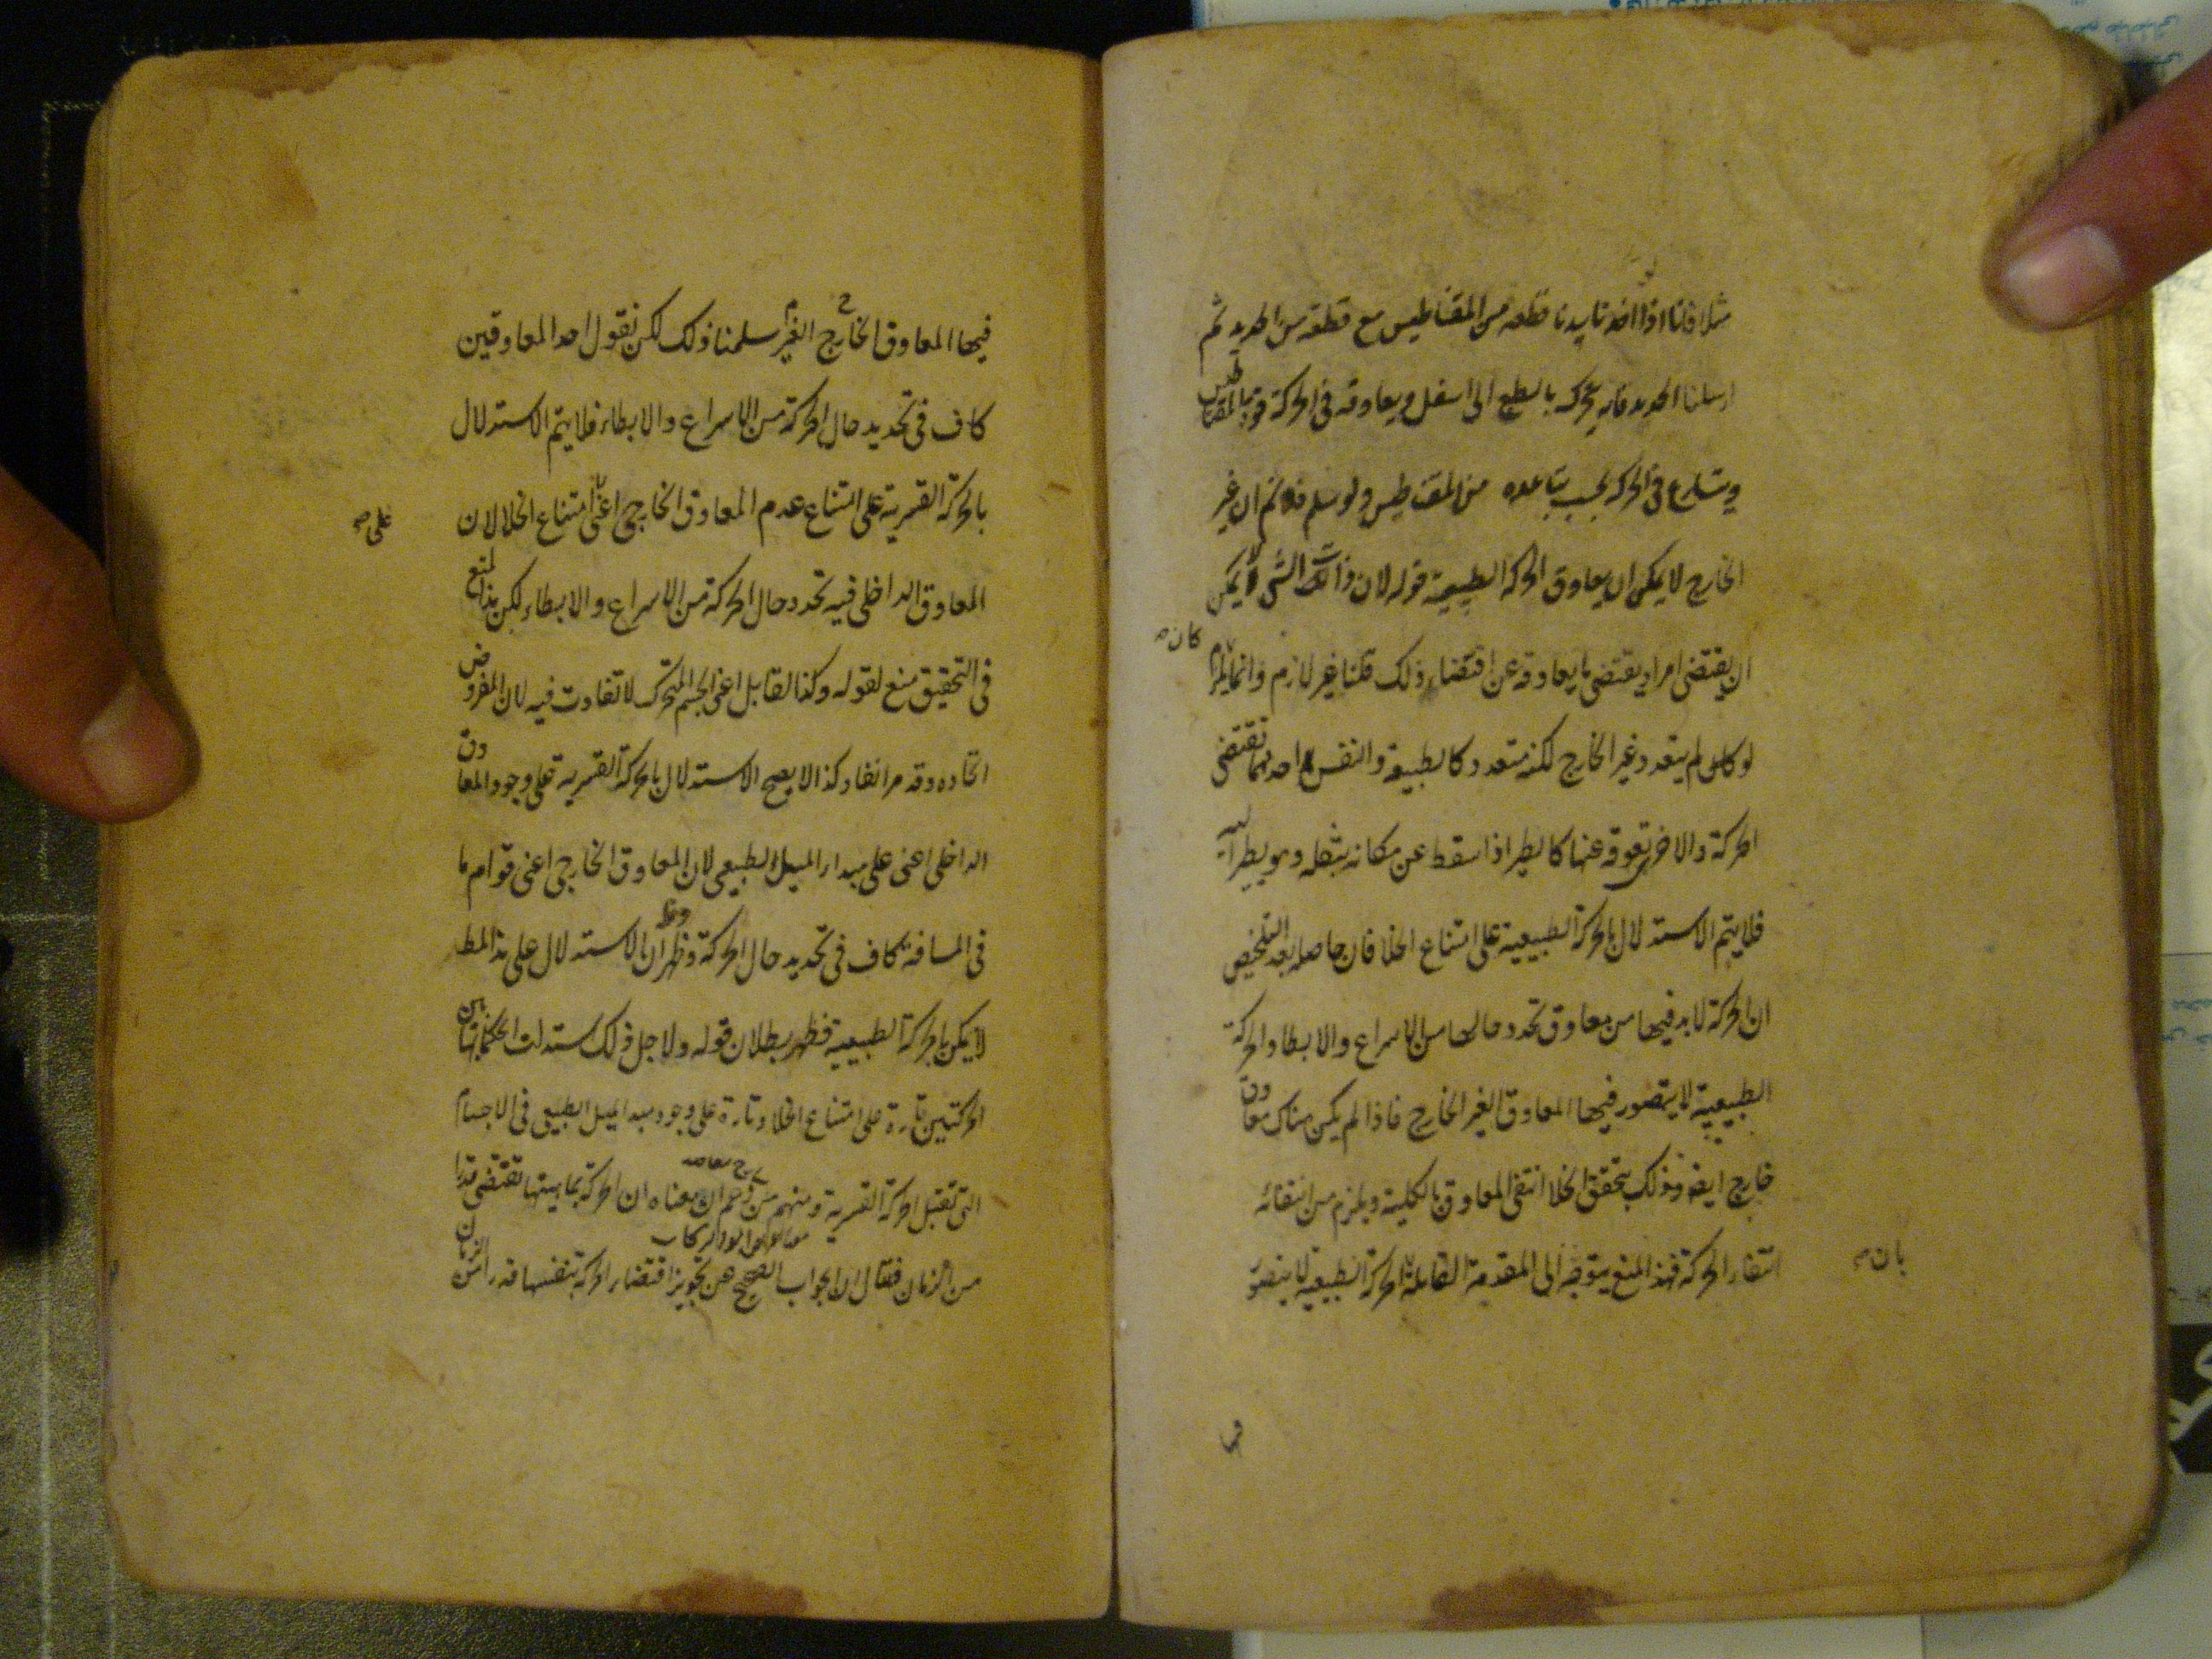 مثلا فلنا اذا اخذنا بيدنا قطعه من المقناطيس مع قطعة من الحديد ثم
ارسلنا الحديد فانه يتحرك بالطبع الى اسفل ويعاوقه فى الحركة قوة المقناطيس
ويتسارع فى الحركة بحسب تباعده من المقناطيس ولو سلم فلانم ان غير
الخارج لا يمكن ان يعاوق الحركة الطبيعية قوله لان ذات الشى لا يمكن
ان يقتضى امرا ويقتضى ما يعاوقه عن اقتضاء ذلك قلنا غير لازم وانما يلزم
كان صح
لو كان لم يتعدد غير الخارج لكنه متعدد كالطبيعة والنفس احدهما تقتضى
الحركة والاخرى تعوقه عنها كالطير اذا سقط عن مكانه بثقله وهو يطير اليه
فلا يتم الاستدلال بالحركة الطبيعية على امتناع الخلا فان حاصله بعد التلخيص
ان الحركة لا بد فيها من معاوق تحدد حالها من الاسراع والابطا والحركة
الطبيعية لا يتصور فيها المعاوق الغير الخارج فاذا لم يكن هناك معاوق
خارج ايضا وذلك بتحقق الخلا انتفى المعاوق بالكلية ويلزم من انتفائه
انتفاء الحركة فهذا المنع يتوجه الى المقدمة القائلة الحركة الطبيعية لا يتصور
بان صح
فيها
فيها المعاوق الخارج الغير سلمنا ذلك لكن نقول احد المعاوقين
كاف فى تحديد حال الحركة من الاسراع والابطاء فلا يتم الاستدلال
بالحركة القسرية على امتناع عدم المعاوق الخارجى اعنى امتناع الخلا لان
على صح
المعاوق الداخلى فيه تحدد حال الحركة من الاسراع والابطاء لكن هذا المنع
فى التحقيق منع لقوله وكذا القابل اعنى الجسم المتحرك لا تفاوت فيه لان المفروض
اتحاده وقد مر انفا وكذا لا يصح الاستدلال بالحركة القسرية على وجود المعاوق
الداخلى اعنى على مبدا الميل الطبيعى لان المعاوق الخارجى اعنى قوام ما
فى المسافة كاف فى تحديد حال الحركة وظهر ان الاستدلال على هذا المط
لا يمكن بالحركة الطبيعية فظهر بطلان قوله ولاجل ذلك استدلت الحكما بهاتين
الحركتين تارة على امتناع الخلا وتارة على وجود مبدا الميل الطبيعى فى الاجسام
التى تقبل الحركة القسرية ومنهم من زعم ان معناه ان الحركة بماهيتها تقتضى قدرا
من الزمان فقال ان الجواب الصحيح عن تجويز اقتضاء الحركة بنفسها قدرا من الزمان